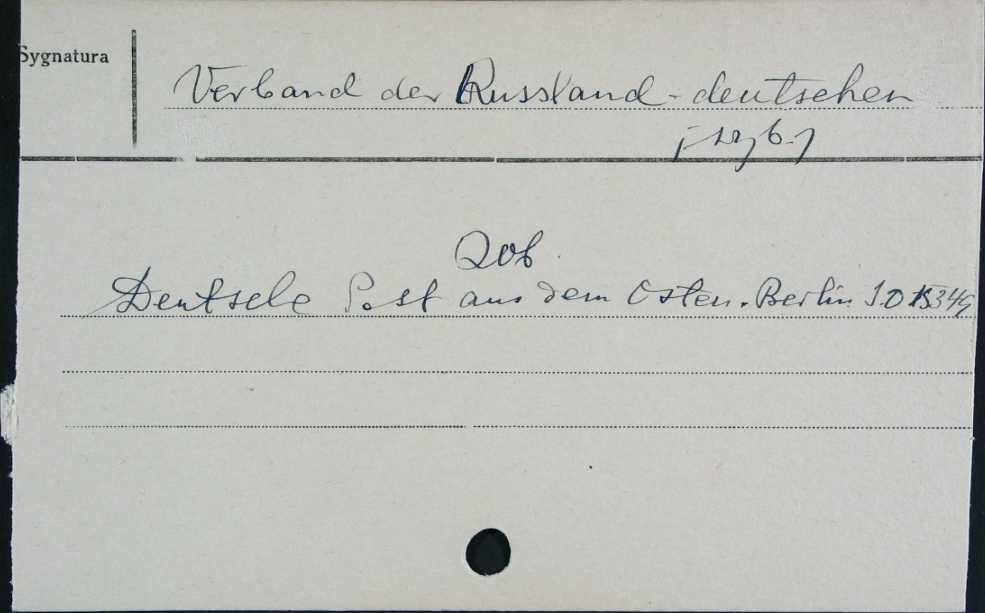 Sygnatura
Verband der Russland-deutschen
[wyd.]
Zob
Deutsche Post aus dem Osten. Berlin